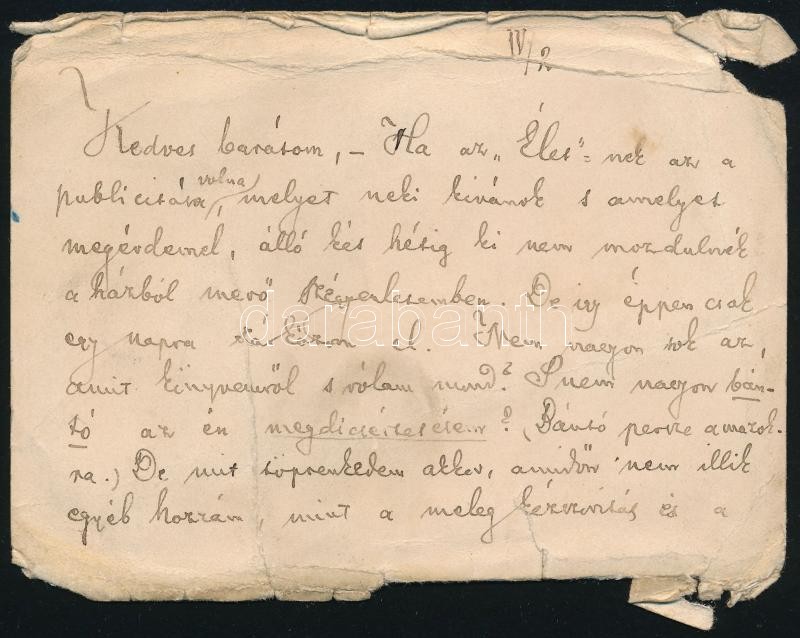 IV/2
Kedves barátom, – Ha az „Élet"-nek az a
publicitása volna, melyet neki kivánok s amelyet
megérdemel, álló két hétig ki nem mozdulnék
a házból merő szégyenletemben. De igy éppen csak
egy napra szántam el. Nem nagyon sok az,
amit könyvemről s rólam mond? S nem nagyon bán-
tó az én megdicsértetésem? (Bántó persze amazok-
ra.) De mit töprenkedem akkor, amidőn nem illik
egyéb hozzám, mint a meleg kézszoritás és a
darabanth